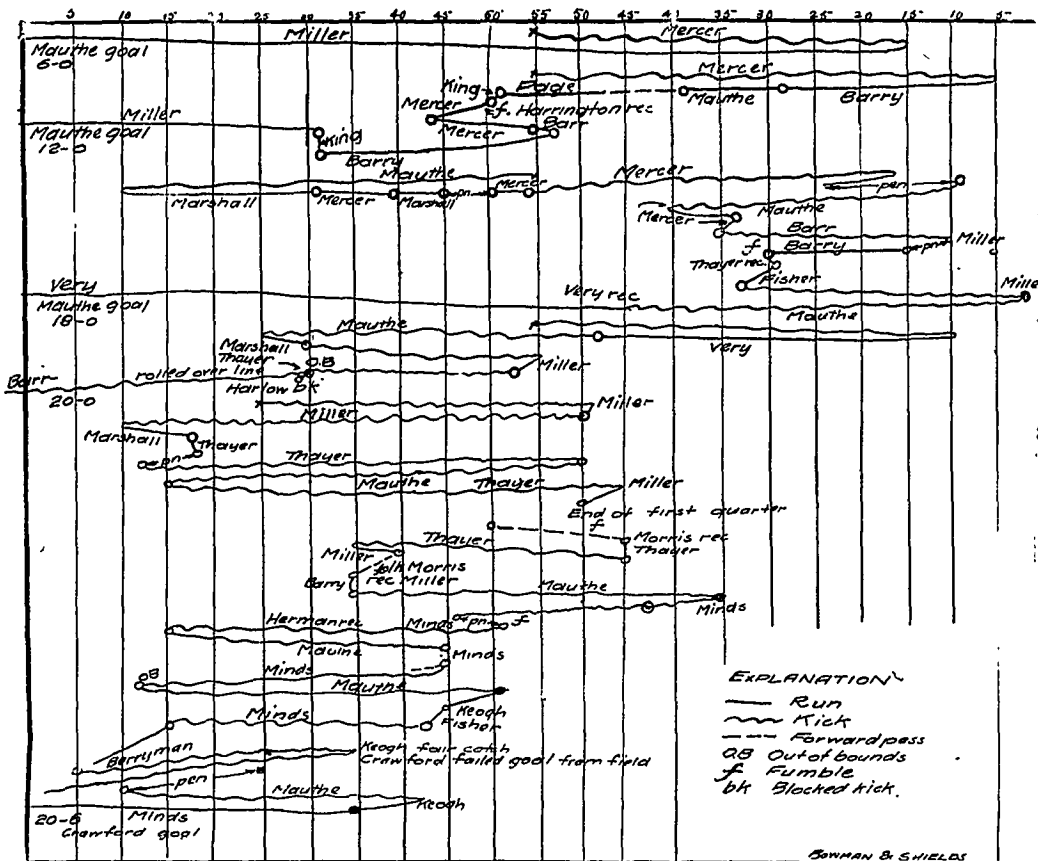 5 10 15 2 25 30 35 40 45 50 55 50 45 41 35 30 25 20 15 10 5
Miller Mercer
Mauthe goal
6-0
Mercer
King Page
Mauthe Barry
Mercer f. Harrington rec
Miller
Mauthe goal King Mercer Barr
12-0
Barry
Mauthe Mercer
Marshall Mercer Marshall pn Mercer pen
Mercer Mauthe
Barr
f Barry pn Miller
Thayer rec
Fisher
Very
Mauthe goal Very rec Miller
18-0 Mauthe
Mauthe
Marshall Very
Thayer O.B Miller
Barr rolled over line
Harlow bk
20-0
Miller Miller
Marshall Thayer
pn Thayer
Mauthe Thayer Miller
End of first quarter
f
Morris rec
Thayer Thayer
Miller
blk Morris
Barry rec Miller
Mauthe
Minds
Herman rec Minds pn f
Mauthe
Minds
OB Minds
Mauthe
Keogh
Minds Fisher
Berryman Keogh fair catch
Crawford failed goal from field
pen
Mauthe
Keogh
20-6 Minds
Crawford goal
EXPLANATION
Run
Kick
Forward pass
OB Out of bounds
f Fumble
bk Blocked kick.
BOWMAN & SHIELDS